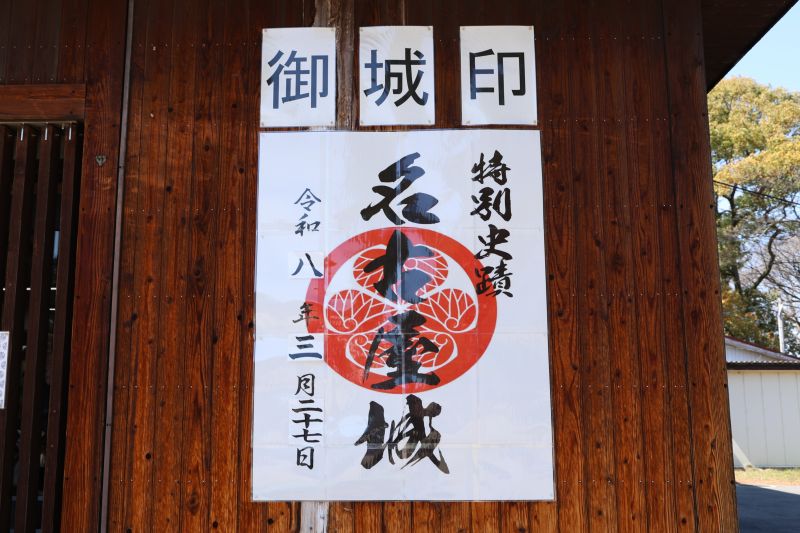 御城印
特別史蹟
名古屋城
令和八年三月二十七日